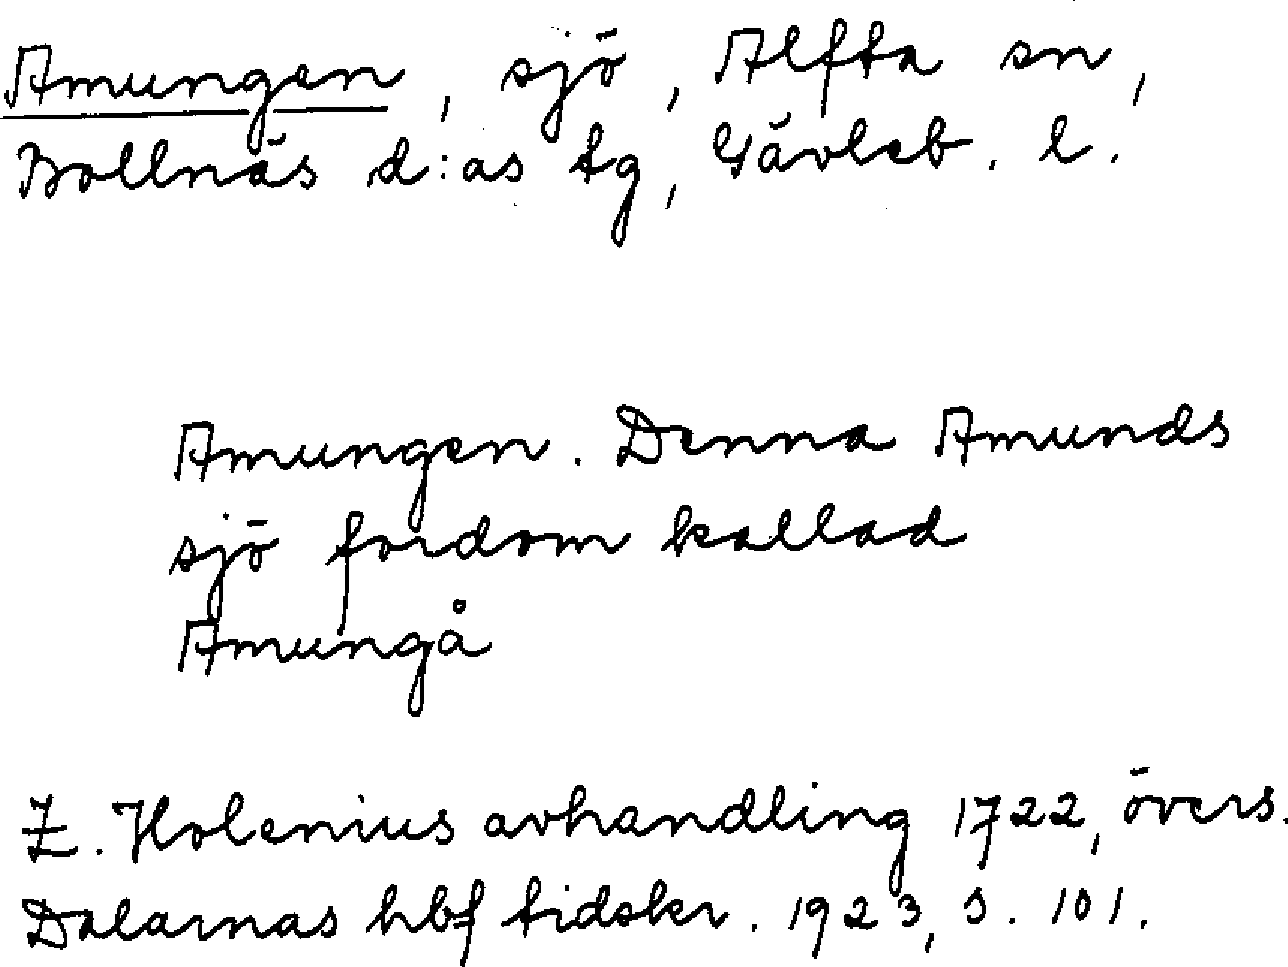 Amungen, sjö, Alfta sn,
Bollnäs d:as tg, Gävleb. l.
Amungen. Denna Amunds
sjö fordom kallad
Amungå
Z. Holenius avhandling 1722, övers.
Dalarnas hbf tidskr. 1923, s. 101.